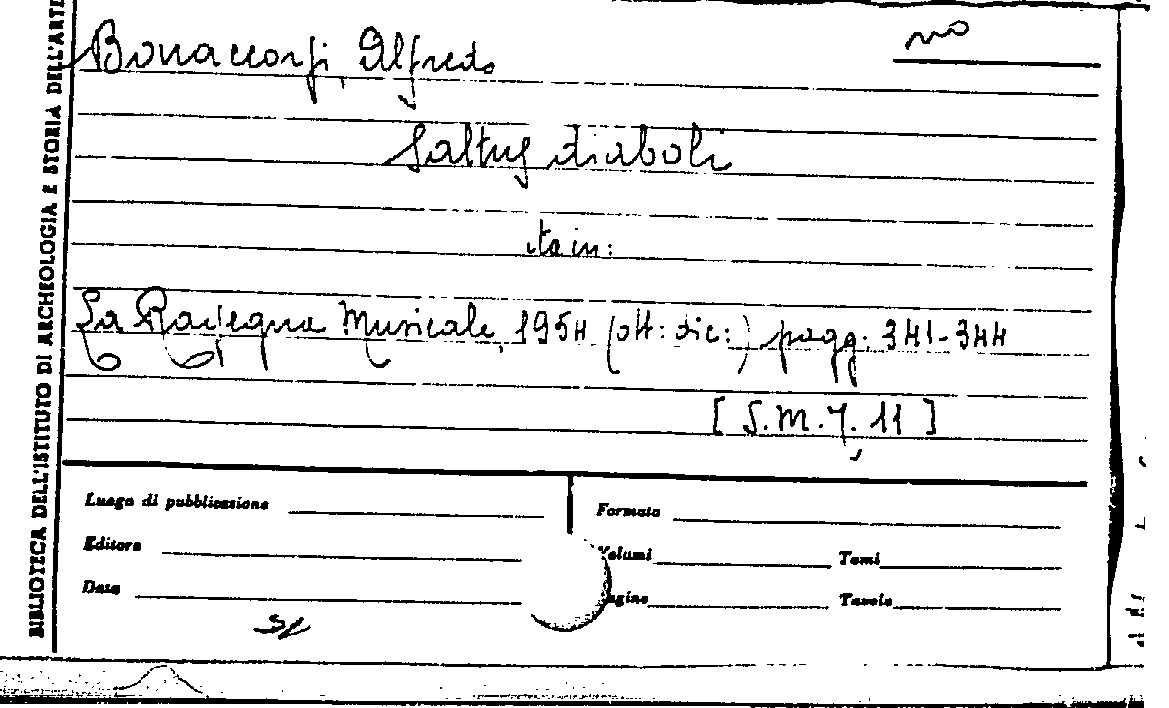 BIBLIOTECA DELL'ISTITUTO DI ARCHEOLOGIA E STORIA DELL'ARTE
Bonaccorsi, Alfredo
Saltus diaboli
sta in:
La Rassegna Musicale, 1954 (ott: dic:) pagg: 341-344
[ S.M. 11 ]
Luogo di pubblicazione
Formato
Editore
Volumi Tomi
Data
Pagine Tavole